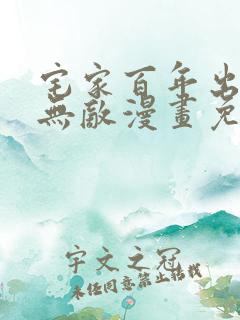 宅家百年出
無敵漫畫免
宇文之冠
未經同意禁止轉載